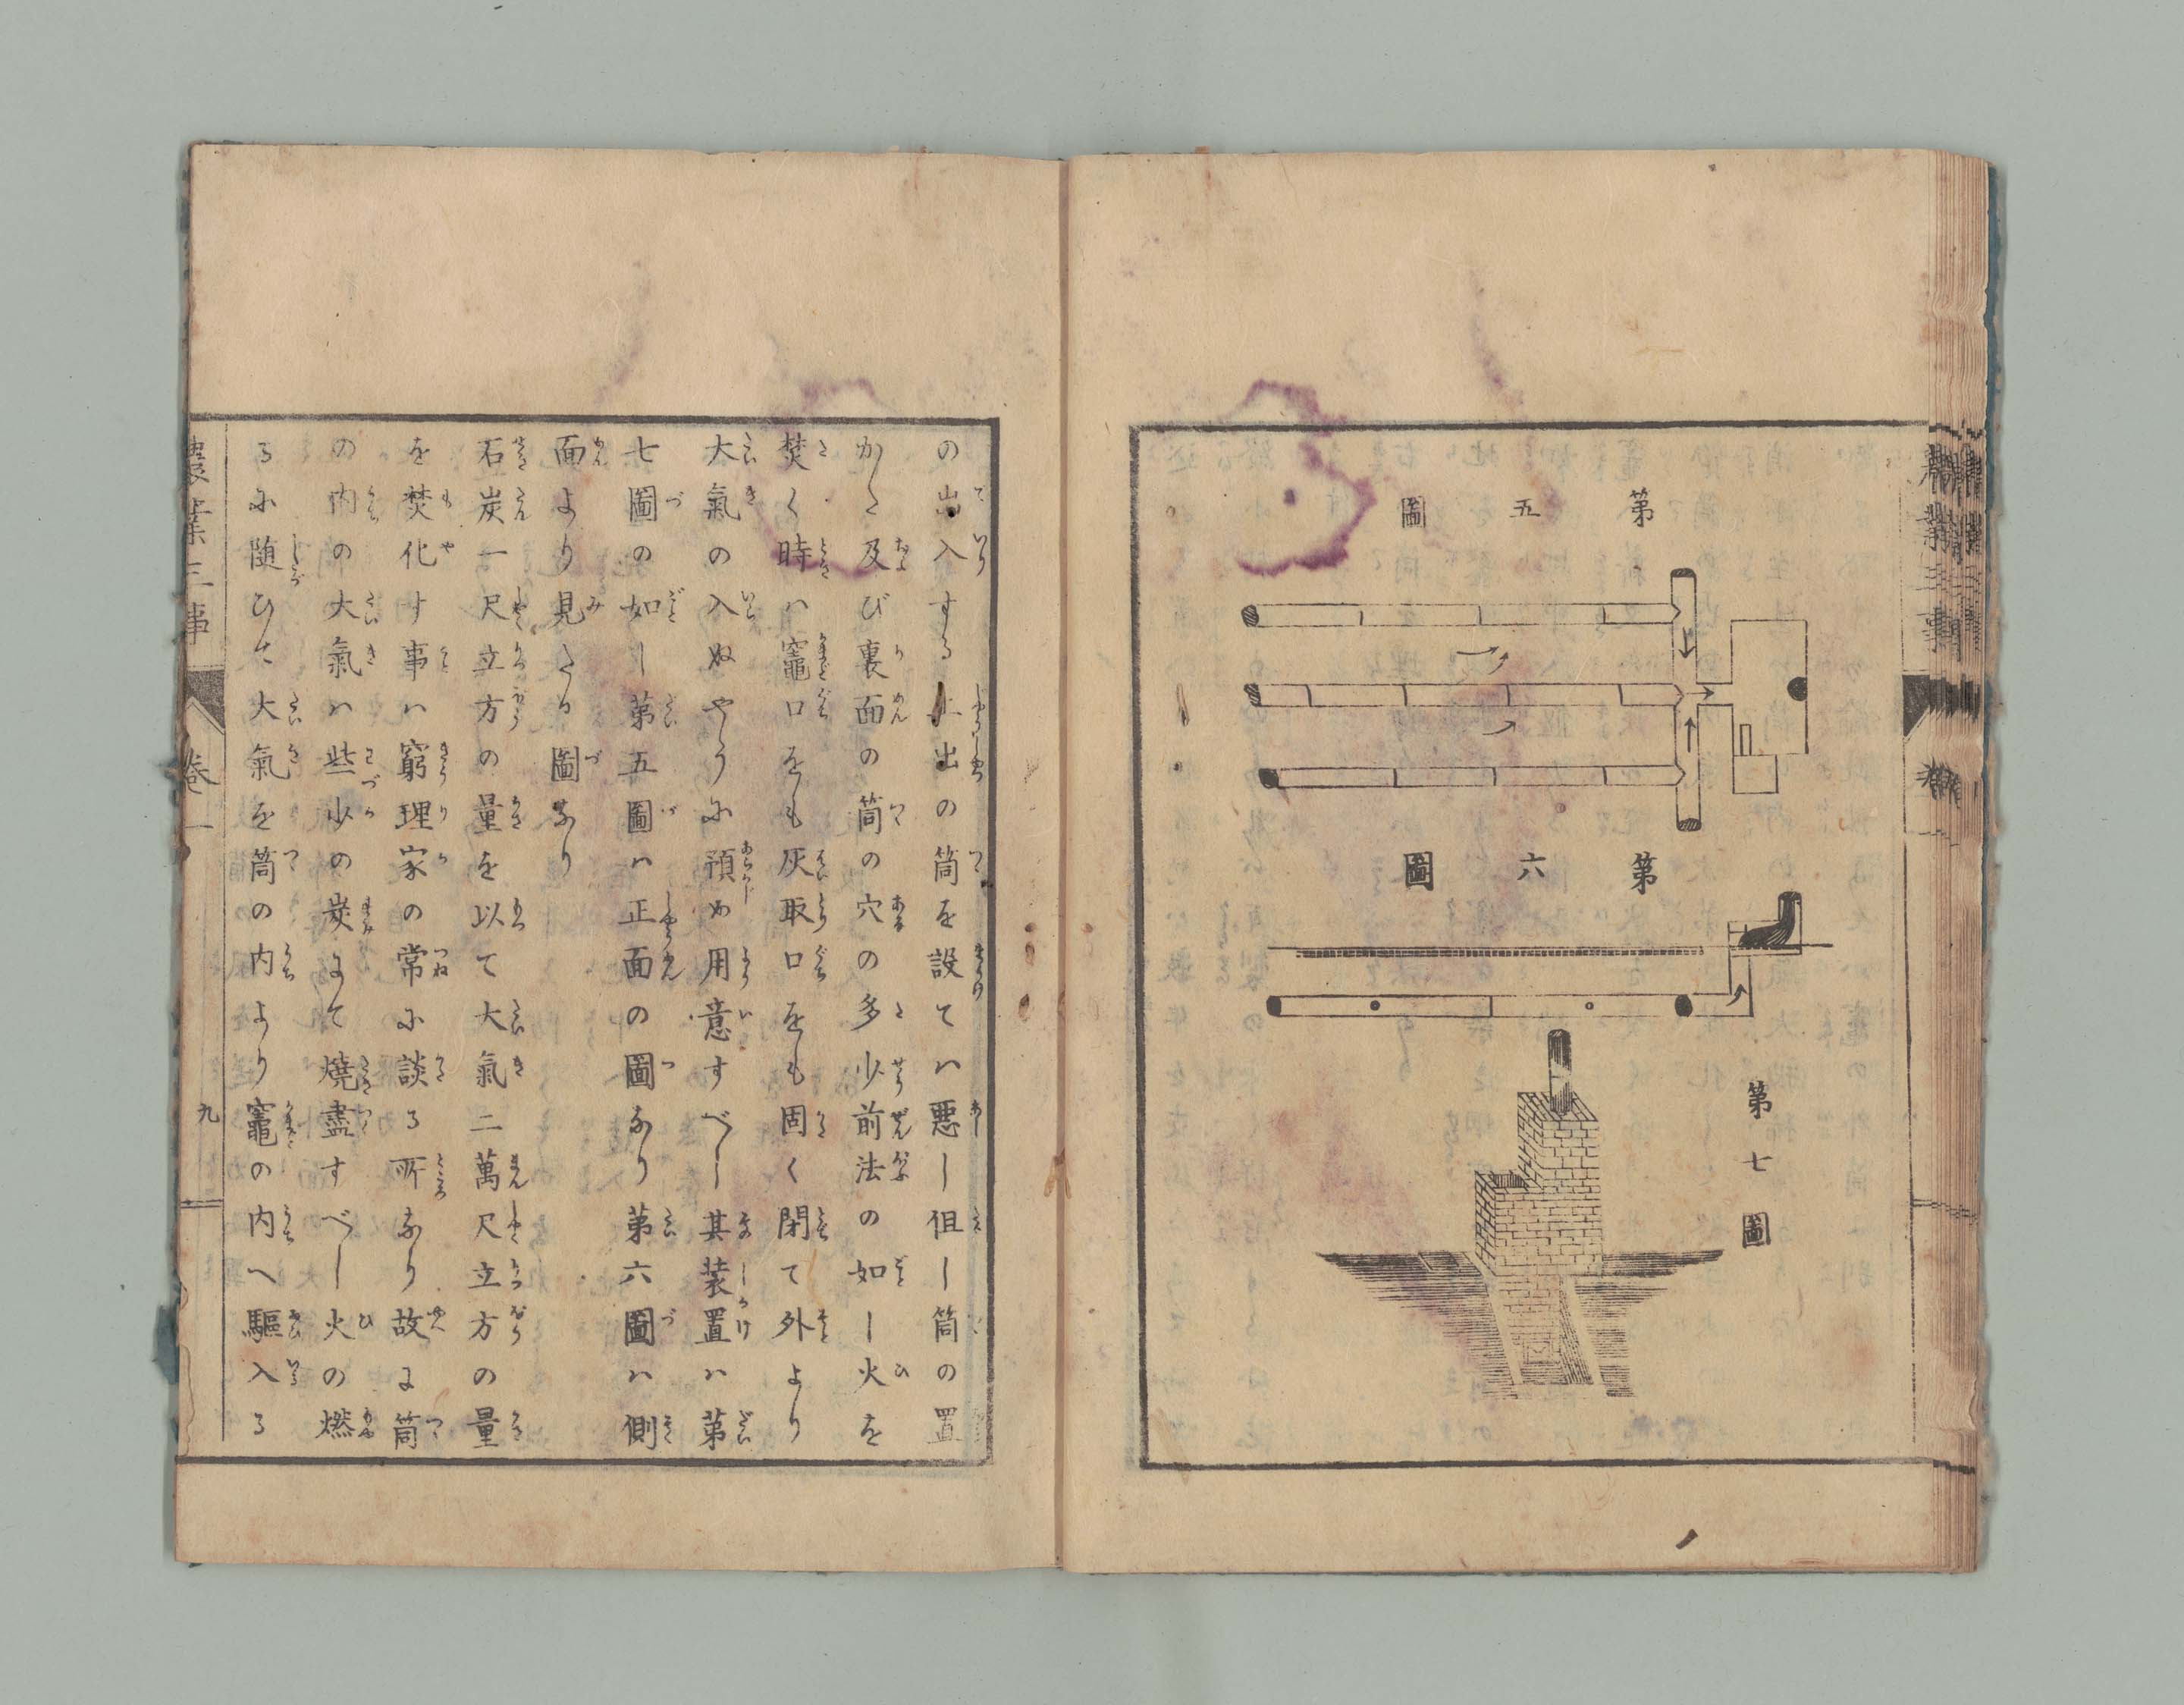 第五圖
第六圖
第七圖
の出入する上出の筒を設てハ悪し但し筒の置
かた及び裏面の筒の穴の多少前法の如し火を
焚く時ハ竈口をも灰取口をも固く閉て外より
大氣の入ぬやうに預め用意すべし其装置ハ第
七圖の如し第五圖ハ正面の圖なり第六圖ハ側
面より見たる圖なり
石炭一尺立方の量を以て大氣二萬尺立方の量
を焚化す事ハ窮理家の常に談る所なり故に筒
の内の大氣ハ些少の炭にて燒盡すべし火の燃
るに随ひて大氣を筒の内より竈の内へ驅入る
農業三事 卷一 九